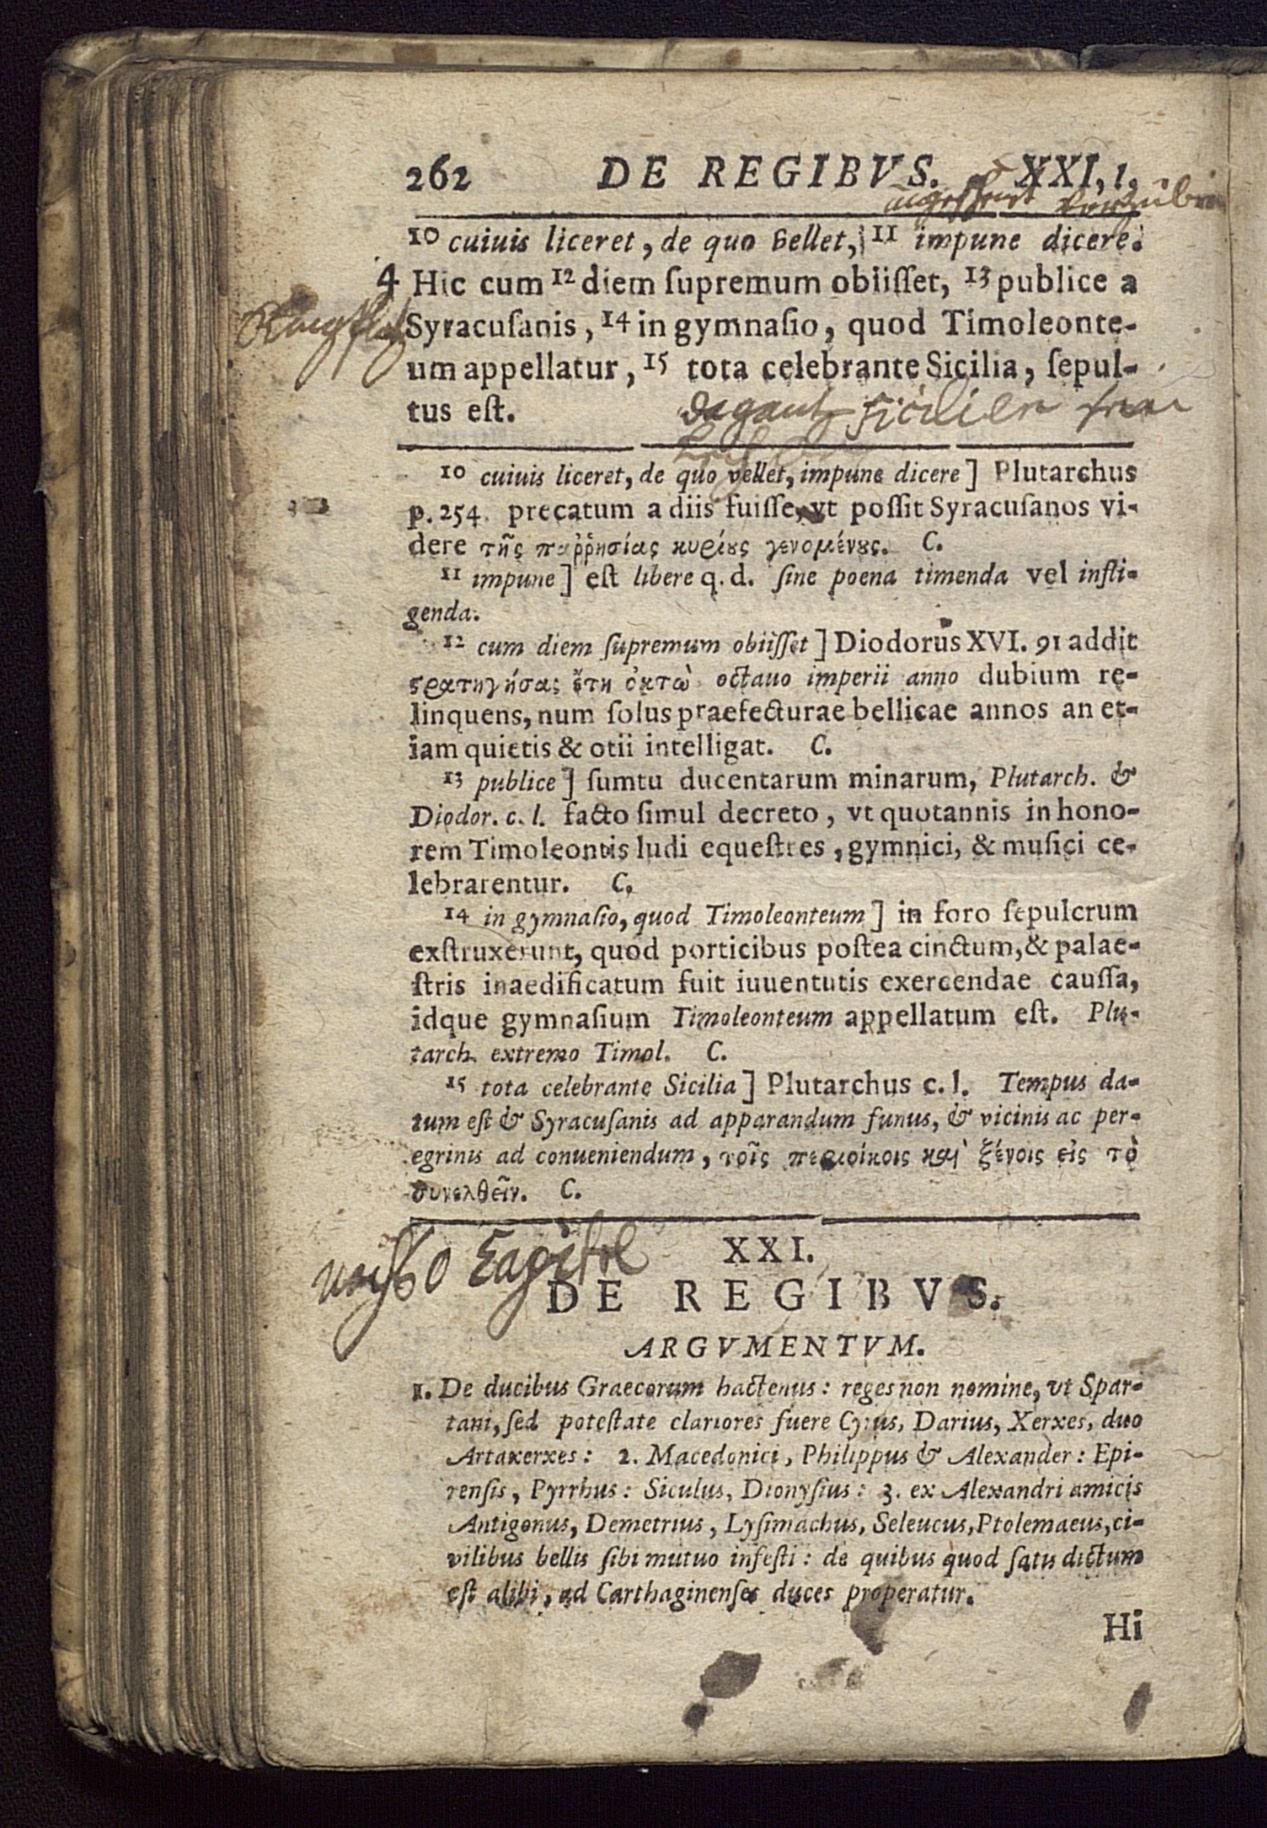 262 DE REGIBVS. XXI, 1.
10 cuiuis liceret, de quo vellet, 11 impune dicere.
4 Hic cum 12 diem ſupremum obiiſſet, 13 publice a
Syracuſanis, 14 in gymnaſio, quod Timoleonte-
um appellatur, 15 tota celebrante Sicilia, ſepul-
tus eſt.
Sicilien
10 cuiuis liceret, de quo vellet, impune dicere] Plutarchus
p. 254. precatum a diis fuiſſe, vt poſſit Syracuſanos vi-
dere τῆς παῤῥησίας κυρίους γενομένους. C.
11 impune] eſt libere q. d. ſine poena timenda vel infli-
genda.
12 cum diem ſupremum obiiſſet] Diodorus XVI. 91 addit
ςρατηγήσας ἔτη ὀκτὼ octauo imperii anno dubium re-
linquens, num ſolus praefecturae bellicae annos an et-
iam quietis & otii intelligat. C.
13 publice] ſumtu ducentarum minarum, Plutarch. &
Diodor. c. l. facto ſimul decreto, vt quotannis in hono-
rem Timoleontis ludi equeſtres, gymnici, & muſici ce-
lebrarentur. C.
14 in gymnaſio, quod Timoleonteum] in foro ſepulcrum
exſtruxerunt, quod porticibus poſtea cinctum, & palae-
ſtris inaedificatum fuit iuuentutis exercendae cauſſa,
idque gymnaſium Timoleonteum appellatum eſt. Plu-
tarch. extremo Timol. C.
15 tota celebrante Sicilia] Plutarchus c. l. Tempus da-
tum eſt & Syracuſanis ad apparandum funus, & vicinis ac per-
egrinis ad conueniendum, τοῖς περιοίκοις καὶ ξένοις εἰς τὸ
συνελθεῖν. C.
XXI.
DE REGIBVS.
ARGVMENTVM.
1. De ducibus Graecorum hactenus: reges non nomine, vt Spar-
tani, ſed poteſtate clariores fuere Cyrus, Darius, Xerxes, duo
Artaxerxes: 2. Macedonici, Philippus & Alexander: Epi-
renſis, Pyrrhus: Siculus, Dionyſius: 3. ex Alexandri amicis
Antigonus, Demetrius, Lyſimachus, Seleucus, Ptolemaeus, ci-
vilibus bellis ſibi mutuo infeſti: de quibus quod ſatis dictum
eſt alibi, ad Carthaginenſes duces properatur.
Hi